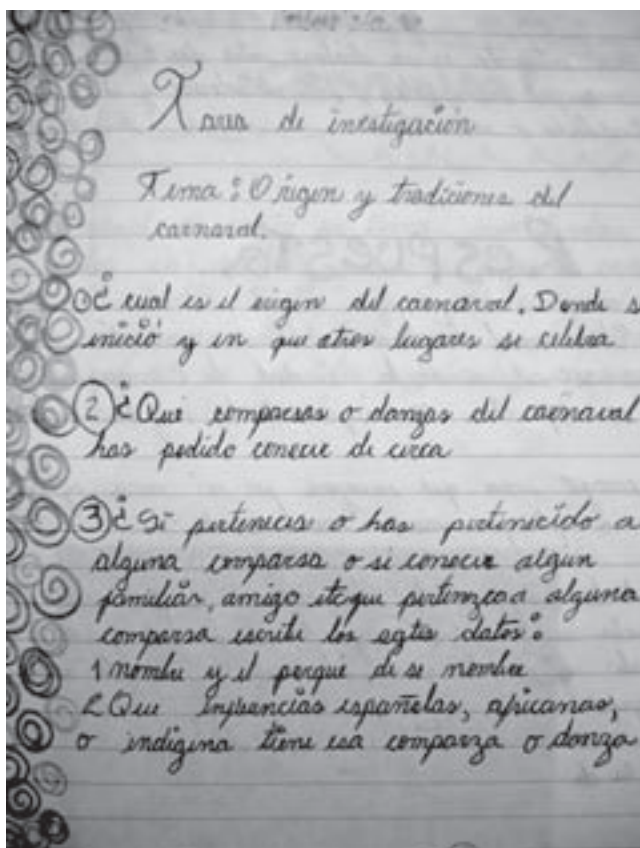 Tarea de investigación
Tema: Origen y tradiciones del
carnaval.
1 ¿cual es el origen del carnaval. Donde s
inició y en que otros lugares se celebra
2 ¿Qué comparsas o danzas del carnaval
has podido conocer de cerca
3 ¿Si perteneces o has pertenecido a
alguna comparsa o si conocer algun
familiar, amigo etc que pertenezca a alguna
comparsa escribe los sgtes datos:
1 nombre y el porque de se nombre
2 Que influencias españolas, africanas,
o indigena tiene esa comparza o danza